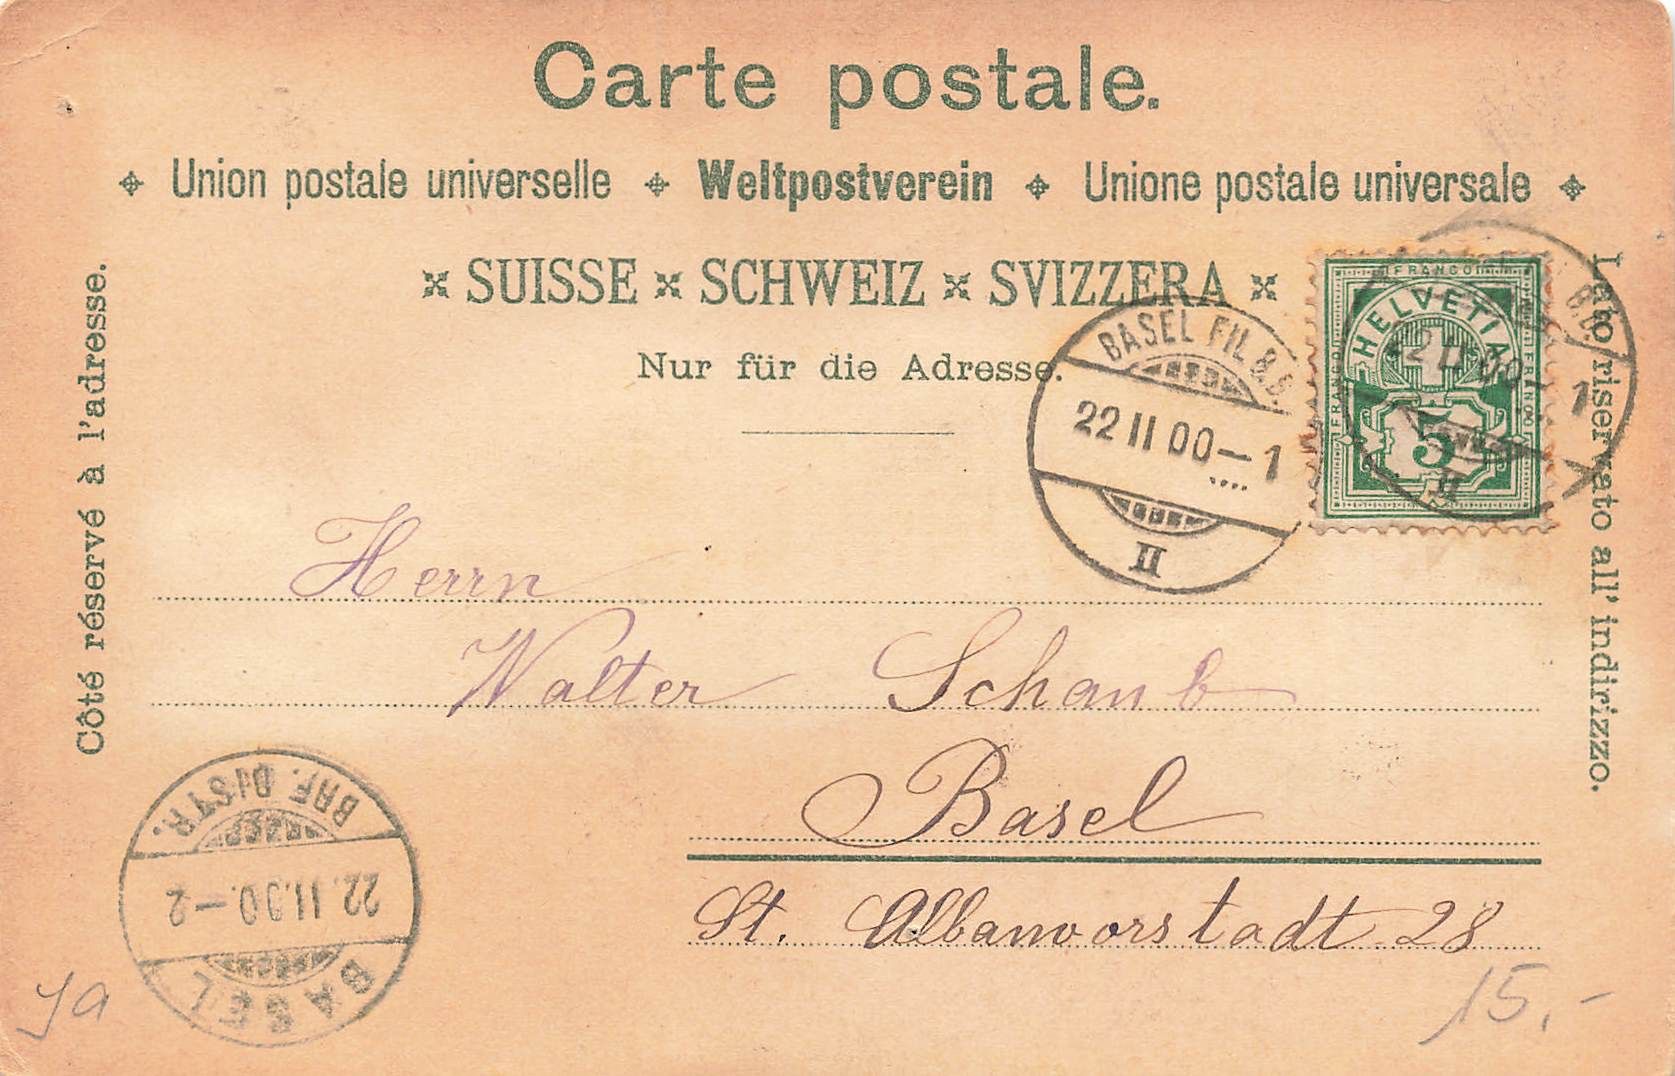 Carte postale.
Union postale universelle Weltpostverein Unione postale universale
SUISSE SCHWEIZ SVIZZERA
Nur für die Adresse.
Côté réservé à l'adresse.
Lato riservato all' indirizzo.
BASEL FIL B.B.
22 II 00 – 1
II
FRANCO
HELVETIA
FRANCO
FRANCO
5
II 00 – 1
II
Herrn
Walter Schaub
Basel
St. Albanvorstadt 28
BRF. DISTR.
22. II. 00. – 2
BASEL
15.-